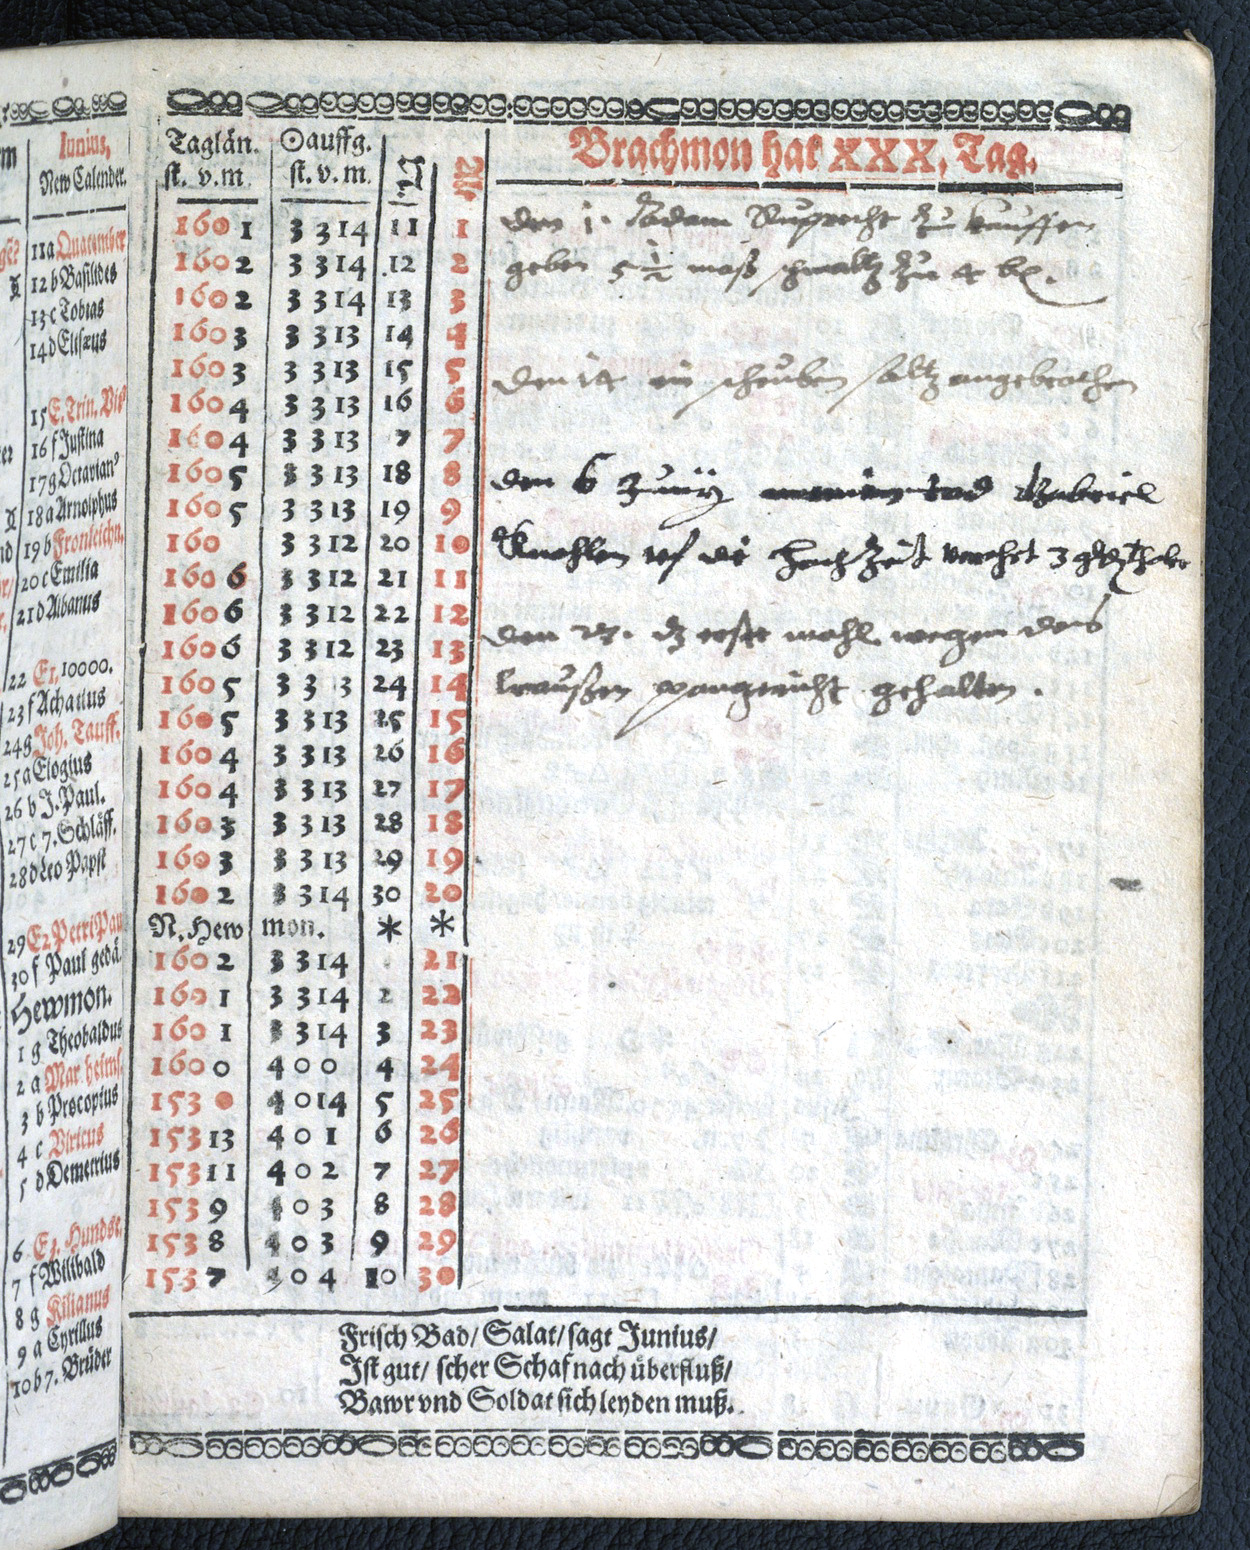 Iunius,
New Calender.
11 a Quatember
12 b Basilides
13 c Tobias
14 d Elisæus
15 E. Trin. Vit9
16 f Justina
17 g Octavian9
18 a Arnolphus
19 b Fronleichn.
20 c Emilia
21 d Albanus
22 E1, 10000.
23 f Achatius
24 g Joh. Tauff.
25 a Elogius
26 b J. Paul.
27 c 7. Schläff.
28 d Leo Papst
29 E2 Petri Pau
30 f Paul gedä.
Hewmon.
1 g Theobaldus
2 a Mar. heims.
3 b Procopius
4 c Vlricus
5 d Demetrius
6. E3. Hundst.
7 f Wilibald
8 g Kilianus
9 a Cyrillus
10 b 7. Brüder
Taglän. ☉auffg.
st. v. m. st. v. m.
Brachmon hat XXX, Tag.
160 1 3 3 14 11 1
160 2 3 3 14 12 2
160 2 3 3 14 13 3
160 3 3 3 13 14 4
160 3 3 3 13 15 5
160 4 3 3 13 16 6
160 4 3 3 13 7 7
160 5 3 3 13 18 8
160 5 3 3 13 19 9
160 3 3 12 20 10
160 6 3 3 12 21 11
160 6 3 3 12 22 12
160 6 3 3 12 23 13
160 5 3 3 3 24 14
160 5 3 3 13 25 15
160 4 3 3 13 26 16
160 4 3 3 13 27 17
160 3 3 3 13 28 18
160 3 3 3 13 29 19
160 2 3 3 14 30 20
N. Hew mon. * *
160 2 3 3 14 21
160 1 3 3 14 2 22
160 1 3 3 14 3 23
160 0 4 0 0 4 24
153 0 4 0 14 5 25
153 13 4 0 1 6 26
153 11 4 0 2 7 27
153 9 4 0 3 8 28
153 8 4 0 3 9 29
153 7 4 0 4 10 30
den 1. Adam Ruprecht zu kauffen
geben 5 1/2 maß schmaltz zu 4
den 14 ein scheuben saltz angebrochen
den 6 Junij Gabriel
vf die Hochzeit verehrt 3
den erste mahl wegen deß
gehalten.
Frisch Bad/ Salat/ sagt Junius/
Ist gut/ scher Schaf nach überfluß/
Bawr vnd Soldat sich leyden muß.